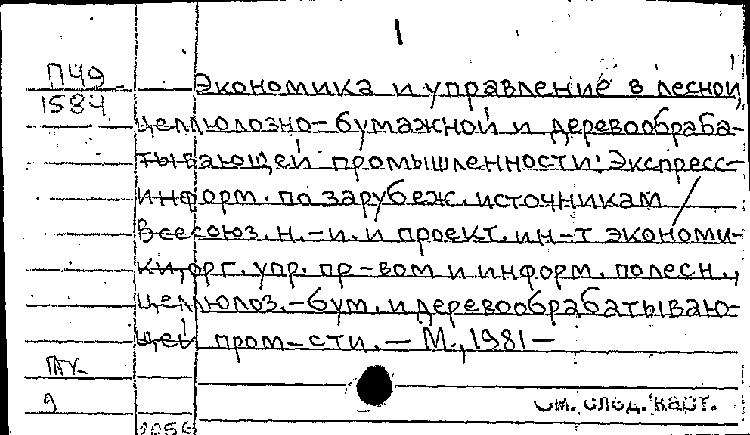 1
П49
1584
Экономика и управление в лесной,
целлюлозно-бумажной и деревообраба-
тывающей промышленности: Экспресс-
информ. по зарубеж. источникам /
Всесоюз. н.-и. и проект. ин-т экономи-
ки, орг. упр. пр-вом и информ. по лесн.,
целлюлоз.-бум. и деревообрабатываю-
щей пром-сти. — М., 1981 —
9
См. след. карт.